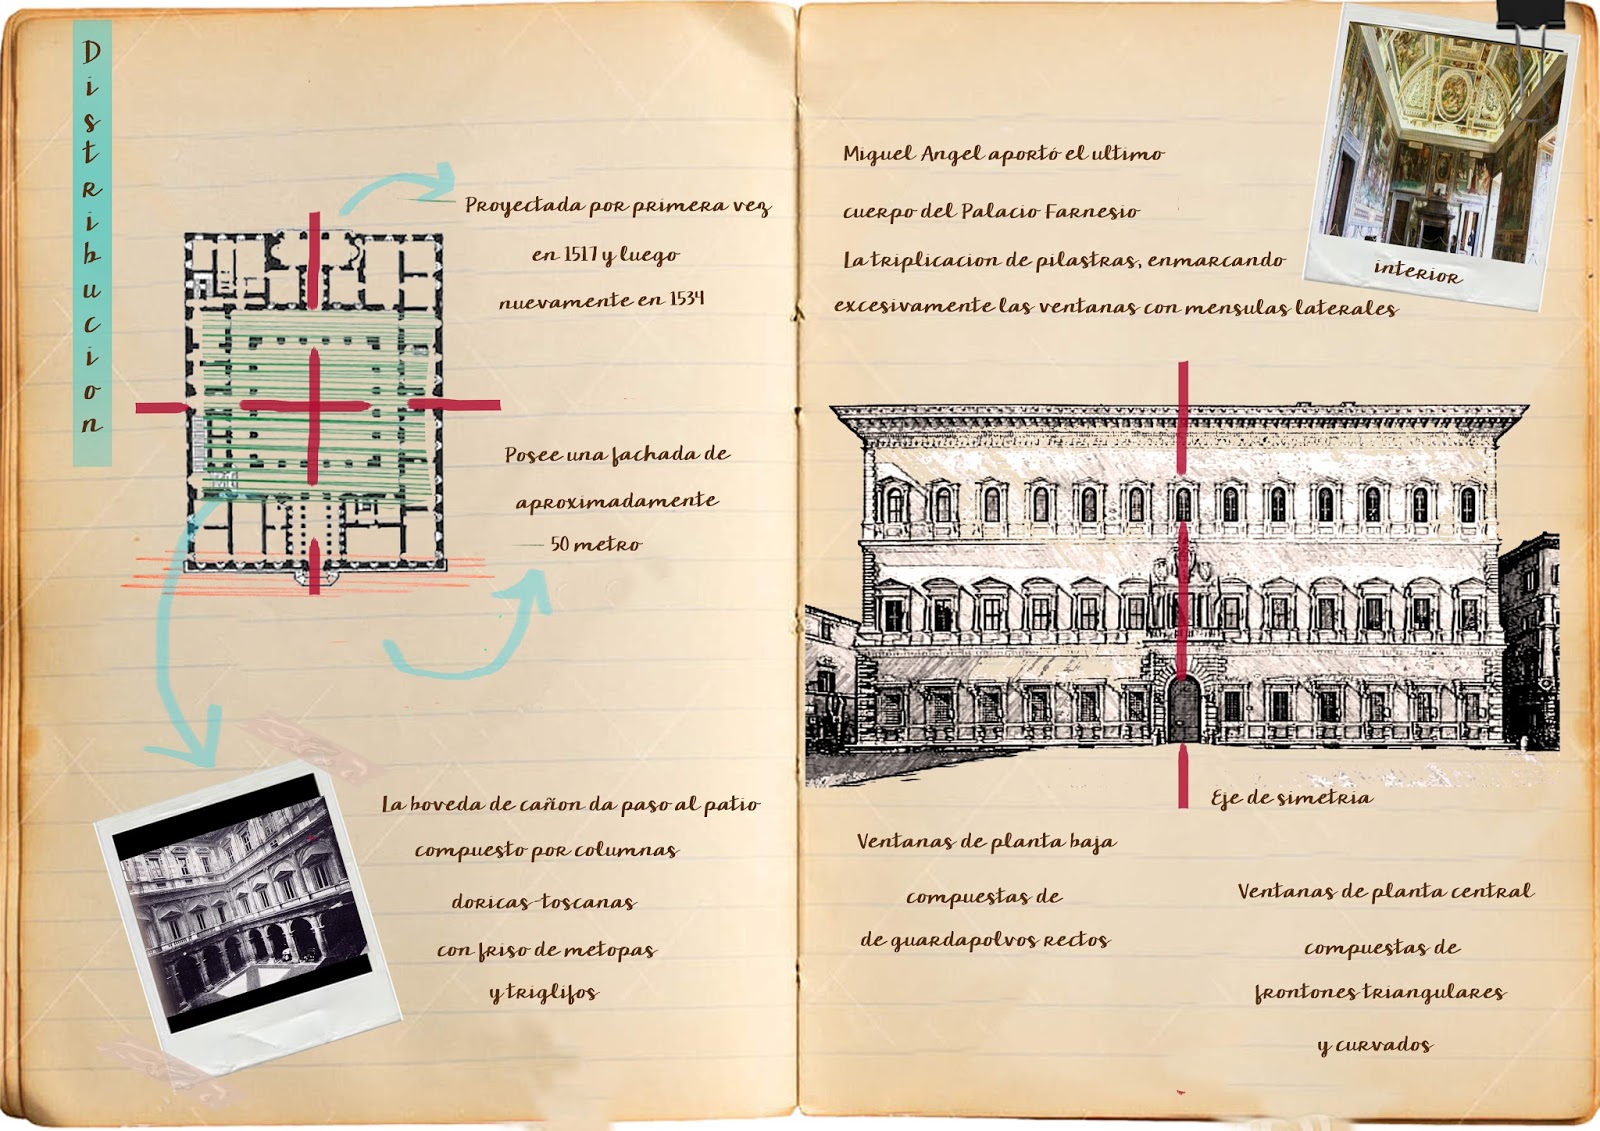 Distribucion
Proyectada por primera vez
en 1517 y luego
nuevamente en 1534
Posee una fachada de
aproximadamente
50 metro
La boveda de cañon da paso al patio
compuesto por columnas
doricas-toscanas
con friso de metopas
y triglifos
Miguel Angel aportó el ultimo
cuerpo del Palacio Farnesio
La triplicacion de pilastras, enmarcando
excesivamente las ventanas con mensulas laterales
interior
Eje de simetria
Ventanas de planta baja
compuestas de
de guardapolvos rectos
Ventanas de planta central
compuestas de
frontones triangulares
y curvados